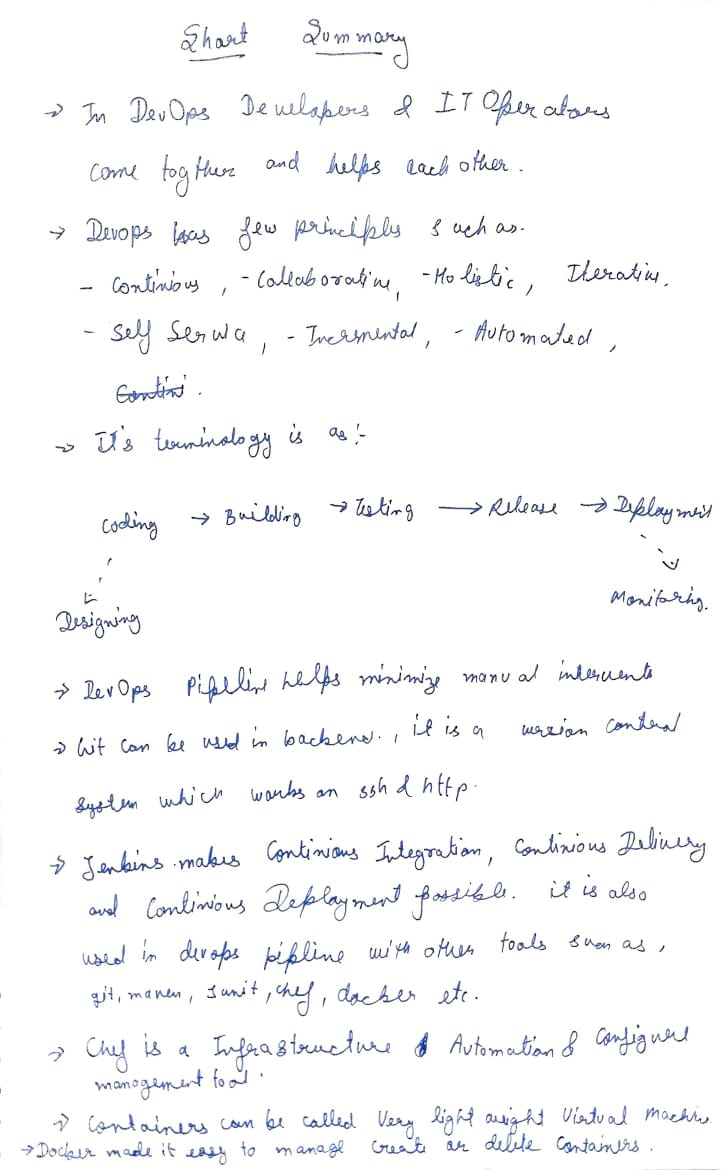 Short Summary
→ In DevOps Developers & IT Operators
come togther and helps each other.
→ Devops has few principles such as.
- Continious, - Collaborative, - Holistic, Iterative,
- Self Serve, - Incremental, - Automated,
Contini.
→ It's terminology is as :-
Coding → Building → Testing → Release → Deployment
Designing
Monitoring.
→ DevOps Pipeline helps minimize manual intervents
→ Git can be used in backend., it is a version control
system which works on ssh & http.
→ Jenkins makes Continious Integration, Continious Delivery
and Continious Deployment possible. it is also
used in devops pipline with other tools such as,
git, maven, Junit, chef, docker etc.
→ Chef is a Infrastructure & Automation & Configure
management tool.
→ Containers can be called Very light weight Virtual Machine
→ Docker made it easy to manage create or delete Containers.